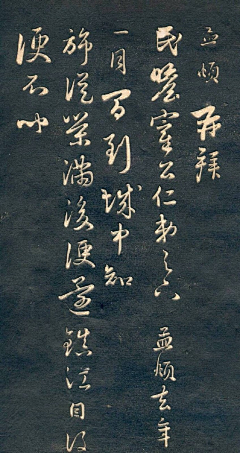 孟頫再拜
民瞻宰公仁弟足下孟頫去年
一月間到城中知
旆從榮滿後便還鎮江自後
便不聞